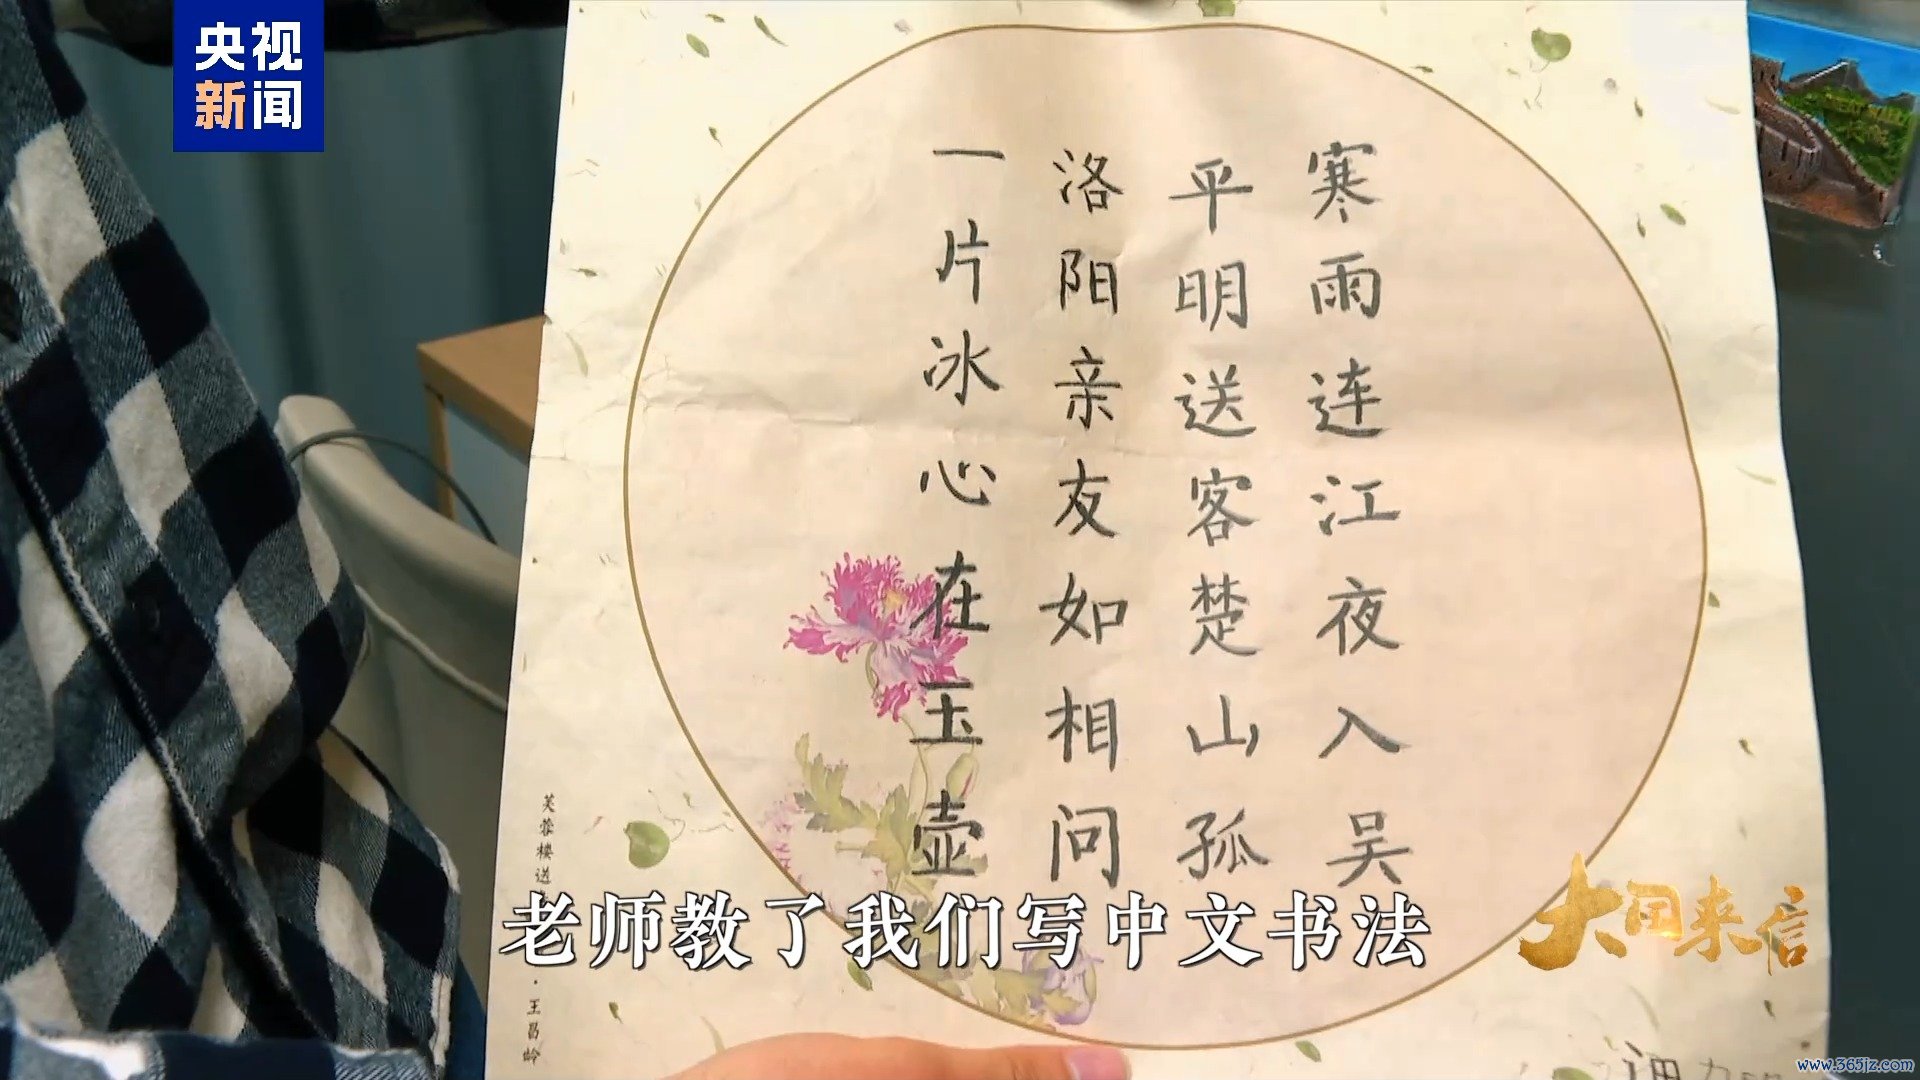 央视
新闻
寒雨连江夜入吴
平明送客楚山孤
洛阳亲友如相问
一片冰心在玉壶
芙蓉楼送
·王昌龄
老师教了我们写中文书法
大国来信
www.365jz.com